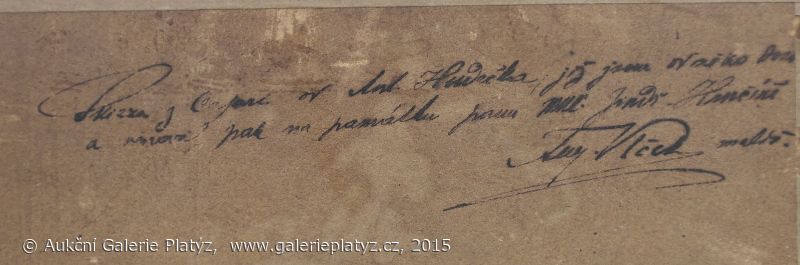 Skizza z Capri od Ant. Hudečka, jež jsem od něho
a pak na památku panu Jindř.
Aug. Vlček malíř.
© Aukční Galerie Platýz, www.galerieplatyz.cz, 2015